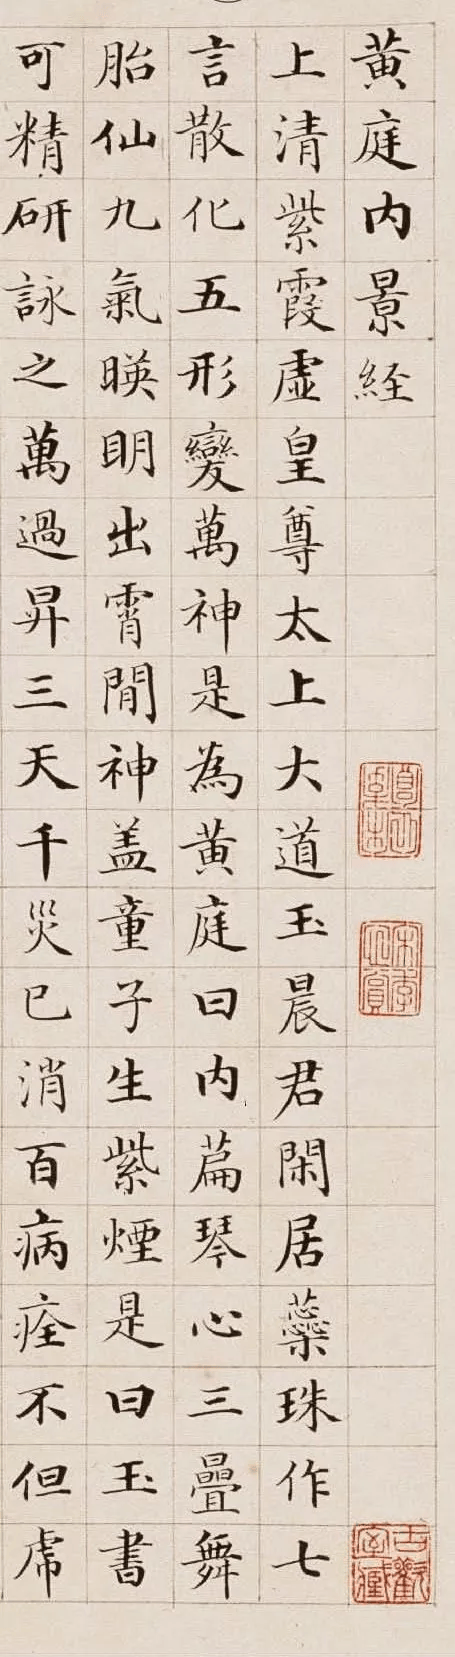 黄庭内景経
上清紫霞虚皇尊太上大道玉晨君閑居蘂珠作七
言散化五形變萬神是為黄庭曰内萹琴心三疊舞
胎仙九氣暎明出霄閒神盖童子生紫煙是曰玉書
可精研詠之萬過昇三天千災已消百病痊不但虎